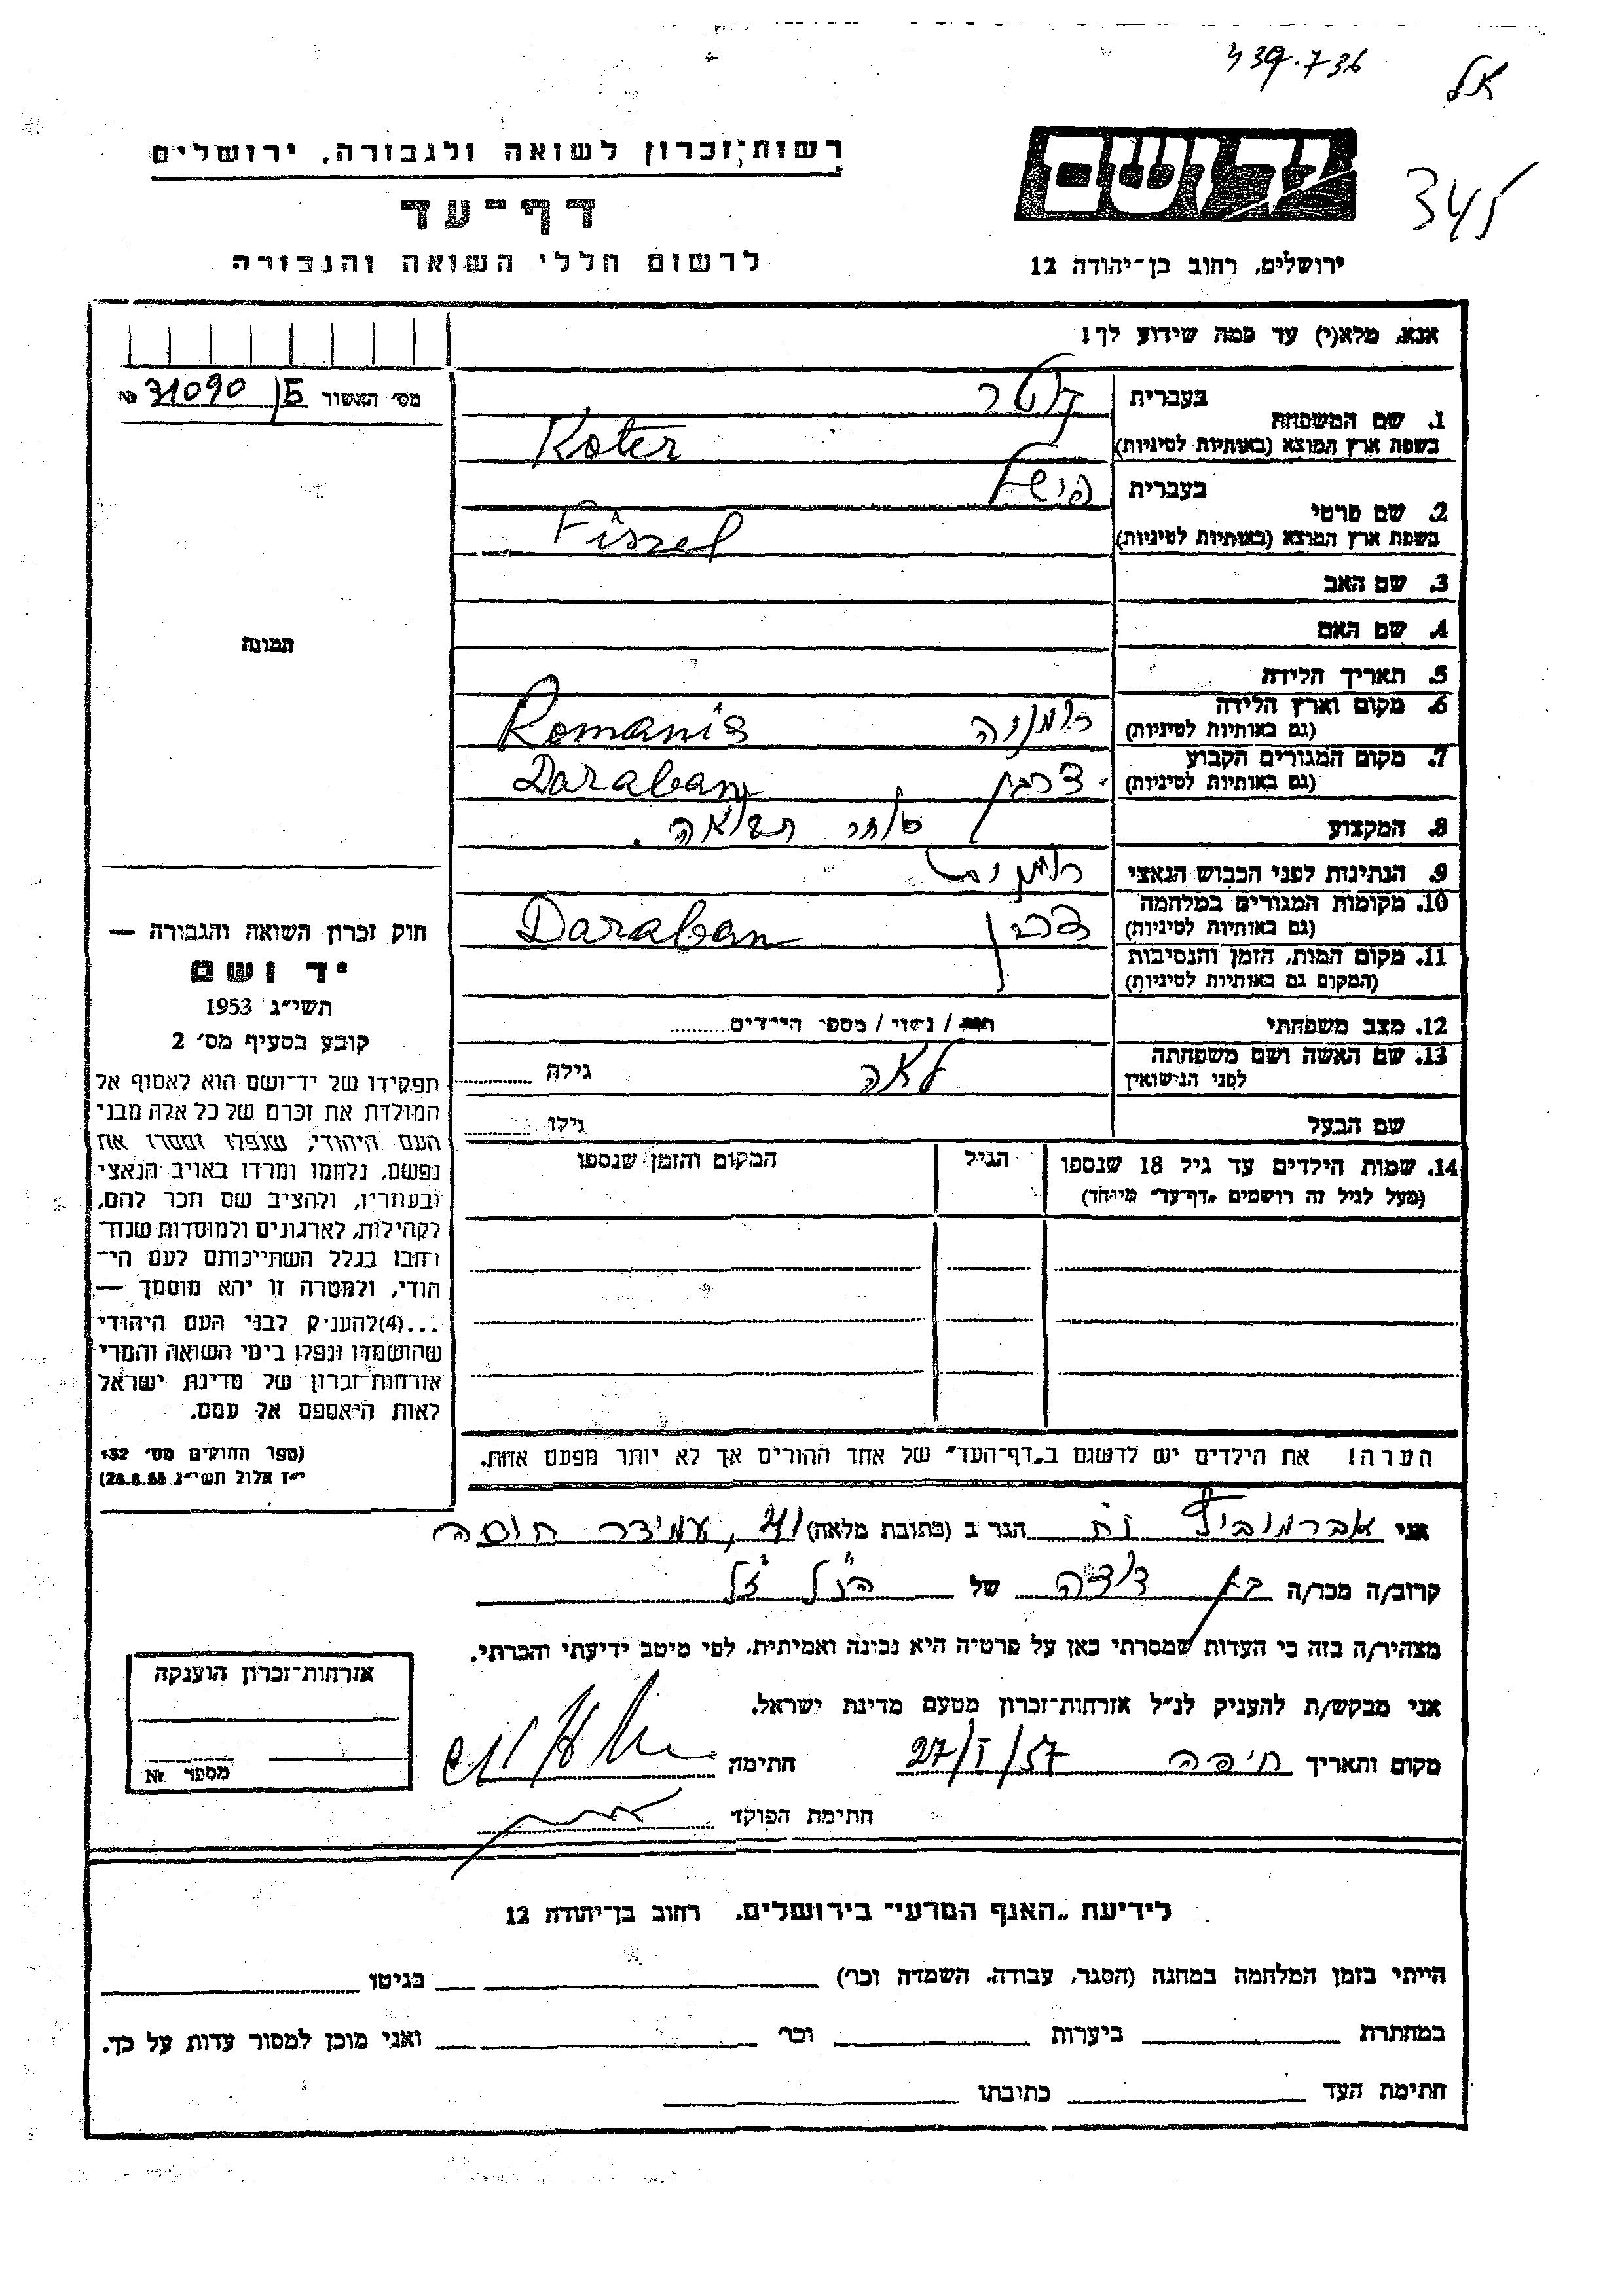 439.736
אל
345
רשות־זכרון לשואה ולגבורה, ירושלים
דף־עד
לרשום חללי השואה והגבורה
יד ושם
ירושלים, רחוב בן־יהודה 12
אנא, מלא(י) עד כמה שידוע לך!
מס׳ האשור 15 31090 №
תמונה
1. שם המשפחה
בעברית קוטר
בשפת ארץ המוצא (באותיות לטיניות) Koter
2. שם פרטי
בעברית פישל
בשפת ארץ המוצא (באותיות לטיניות) Fiszel
3. שם האב
4. שם האם
5. תאריך הלידה
6. מקום וארץ הלידה רומניה Romania
(גם באותיות לטיניות)
7. מקום המגורים הקבוע דרבן Daraban
(גם באותיות לטיניות)
8. המקצוע סוחר תבואה.
9. הנתינות לפני הכבוש הנאצי רומנית
10. מקומות המגורים במלחמה דרבן Daraban
(גם באותיות לטיניות)
11. מקום המות, הזמן והנסיבות
(המקום גם באותיות לטיניות)
12. מצב משפחתי רווק / נשוי / מספר הילדים
13. שם האשה ושם משפחתה לאה גילה
לפני הנישואין
שם הבעל גילו
14. שמות הילדים עד גיל 18 שנספו הגיל המקום והזמן שנספו
(מעל לגיל זה רושמים „דף־עד״ מיוחד)
הערה! את הילדים יש לרשום ב„דף־העד״ של אחד ההורים אך לא יותר מפעם אחת.
חוק זכרון השואה והגבורה —
יד ושם
תשי״ג 1953
קובע בסעיף מס׳ 2
תפקידו של יד־ושם הוא לאסוף אל
המולדת את זכרם של כל אלה מבני
העם היהודי, שנפלו ומסרו את
נפשם, נלחמו ומרדו באויב הנאצי
ובעוזריו, ולהציב שם וזכר להם,
לקהילות, לארגונים ולמוסדות שנח־
רבו בגלל השתייכותם לעם הי־
הודי, ולמטרה זו יהא מוסמך —
...(4)להעניק לבני העם היהודי
שהושמדו ונפלו בימי השואה והמרי
אזרחות־זכרון של מדינת ישראל
לאות היאספם אל עמם.
(ספר החוקים מס׳ 132
י״ז אלול תשי״ג 28.8.53)
אני אברמוביץ נח הגר ב (כתובת מלאה) 41, עמידר חוסה
קרוב/ה מכר/ה בן דודה של הנ״ל ז״ל
מצהיר/ה בזה כי העדות שמסרתי כאן על פרטיה היא נכונה ואמיתית, לפי מיטב ידיעתי והכרתי.
אני מבקש/ת להעניק לנ״ל אזרחות־זכרון מטעם מדינת ישראל.
מקום ותאריך חיפה 27/I/57 חתימה
חתימת הפוקד
אזרחות־זכרון הוענקה
מספר №
לידיעת „האגף המדעי״ בירושלים. רחוב בן־יהודה 12
הייתי בזמן המלחמה במחנה (הסגר, עבודה, השמדה וכו׳) בגיטו
במחתרת ביערות וכו׳ ואני מוכן למסור עדות על כך.
חתימת העד כתובתו